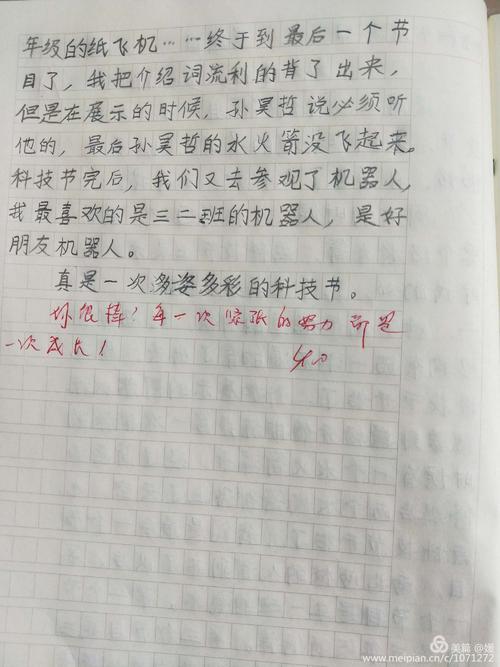 年级的纸飞机……终于到最后一个节
目了，我把介绍词流利的背了出来，
但是在展示的时候，孙昊哲说必须听
他的，最后孙昊哲的水火箭没飞起来。
科技节完后，我们又去参观了机器人，
我最喜欢的是三二班的机器人，是好
朋友机器人。
真是一次多姿多彩的科技节。
你很棒！每一次紧张的努力都是
一次成长！
美篇 @媛
www.meipian.cn/c/1071272